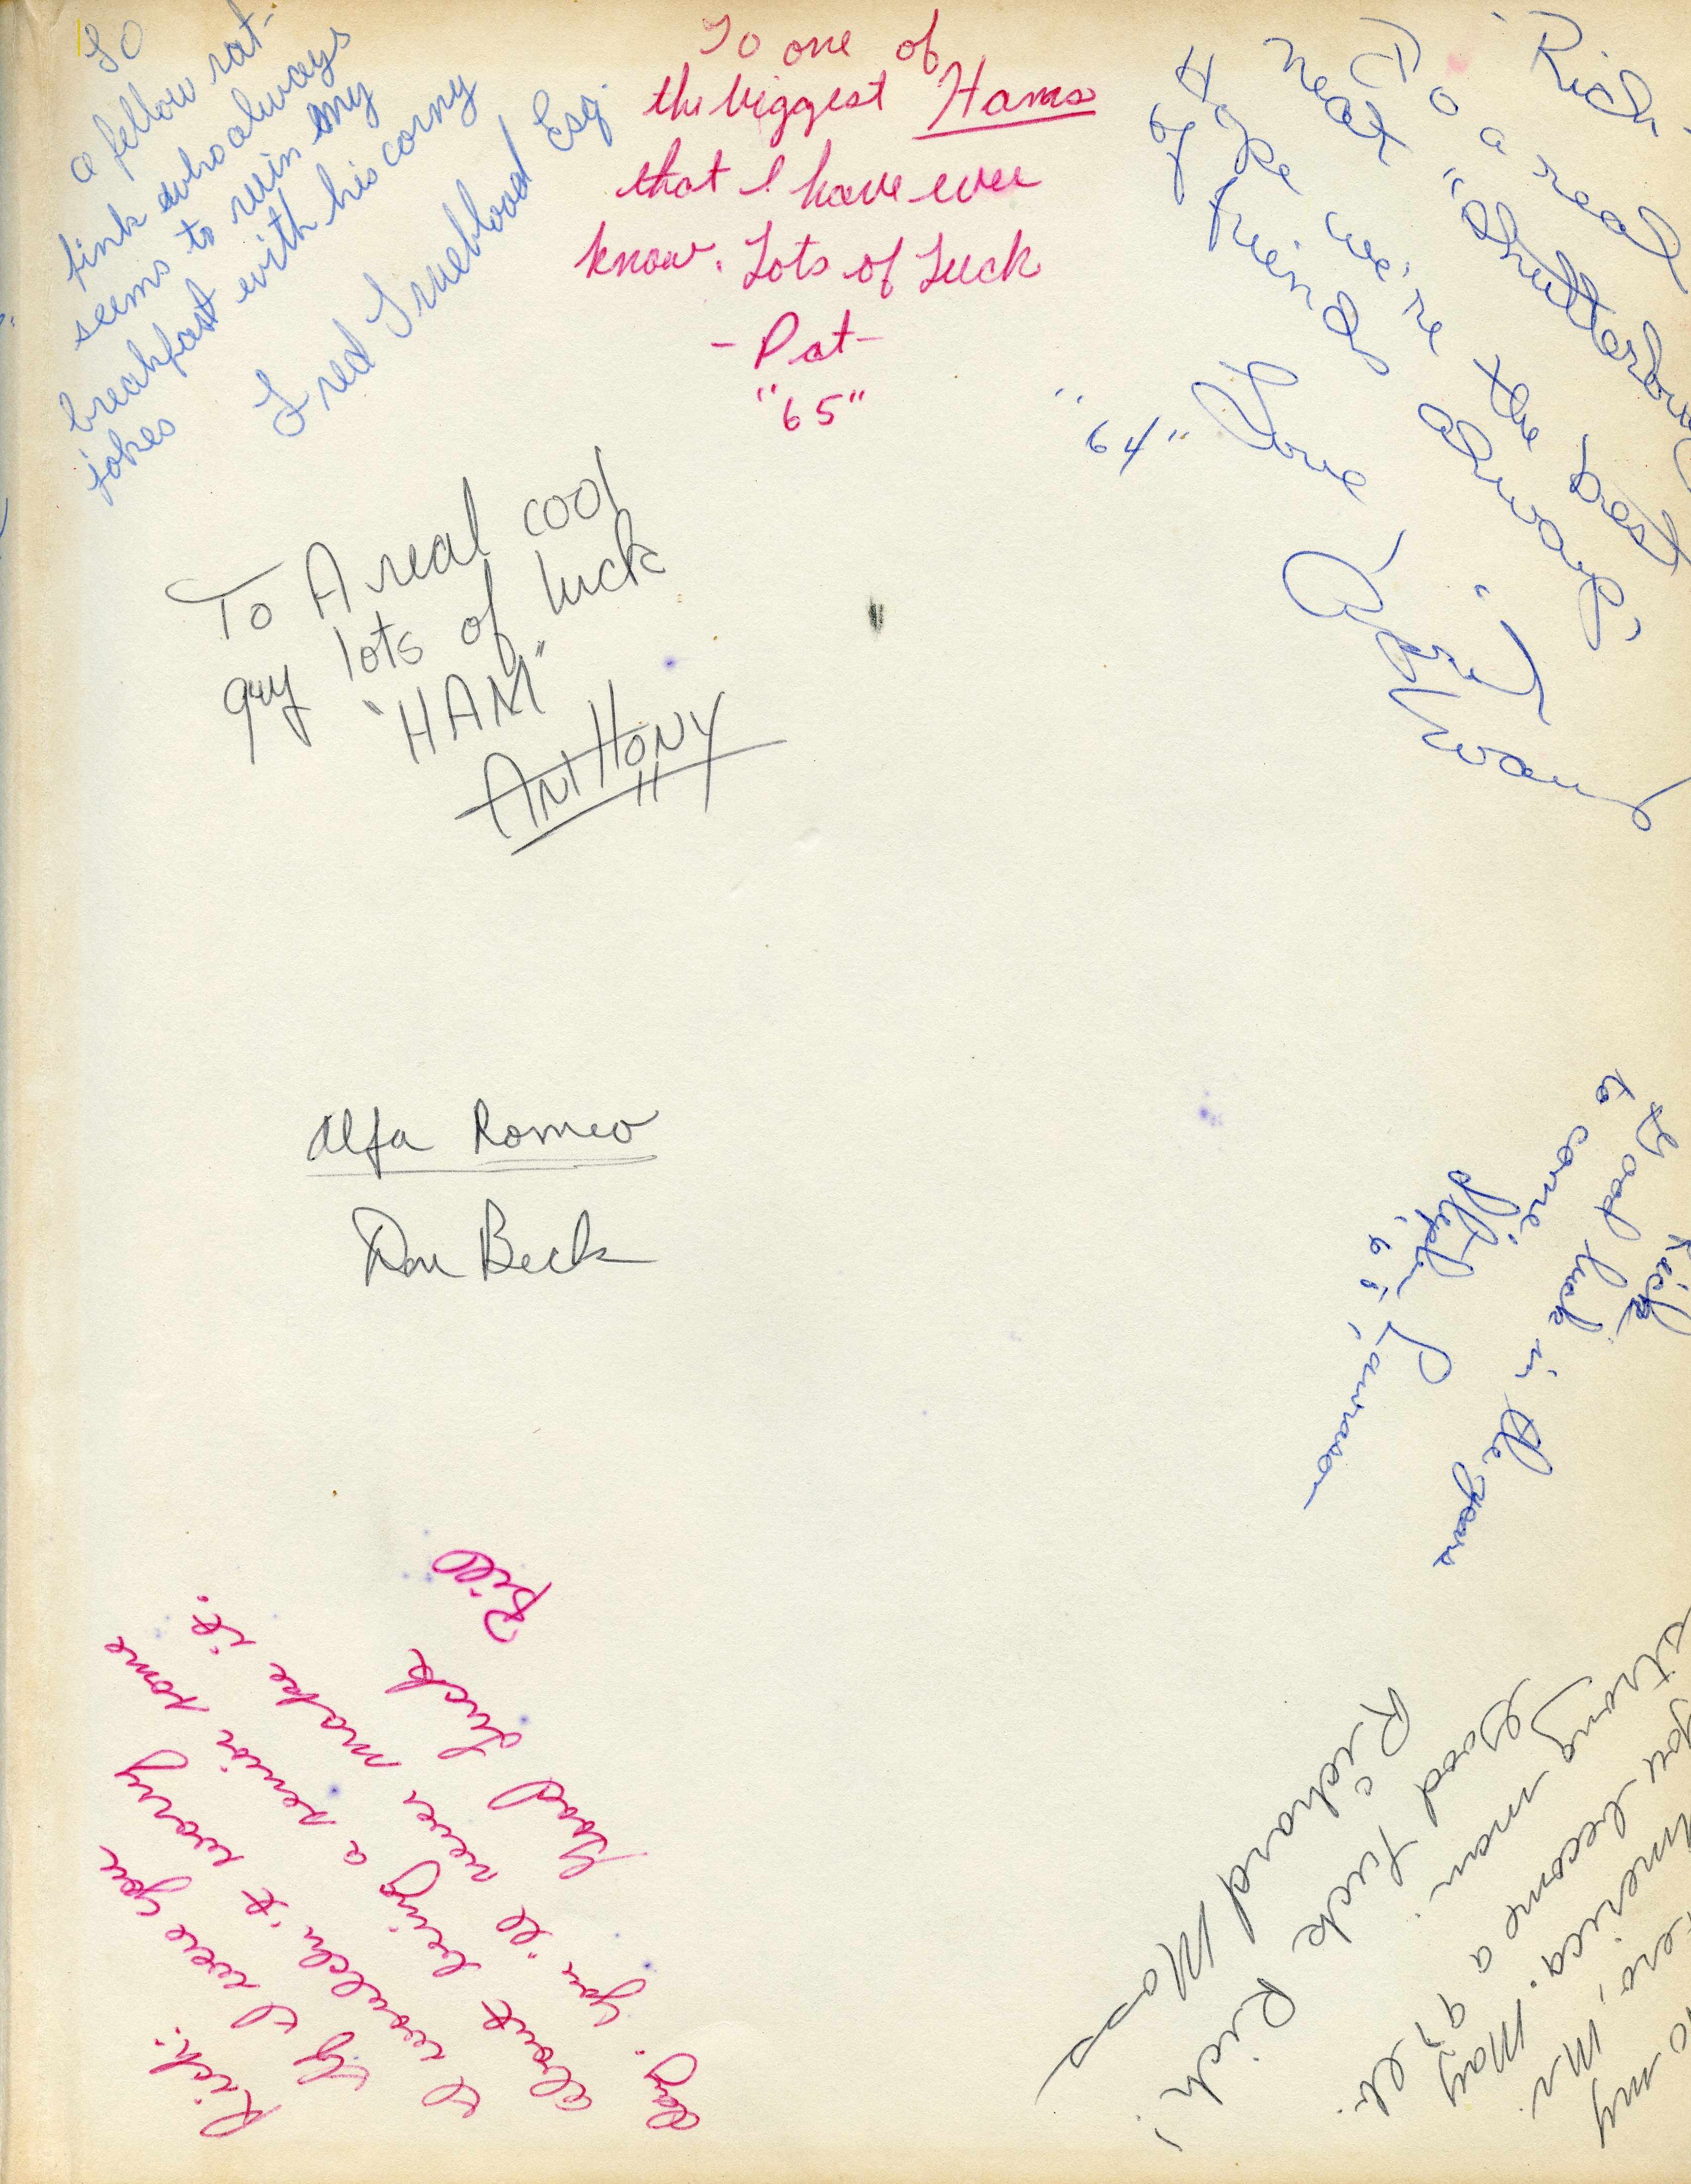 To
a fellow rat-
fink who always
seems to ruin my
breakfast with his corny
jokes
Fred Trueblood Esq.
To one of
the biggest Hams
that I have ever
know. Lots of Luck
- Pat -
"65"
Rich.
To a real
neat "Shutterbug"
Hope we're the best
of friends always,
Love
"64"
To A real cool
guy lots of luck
"HAM"
ANTHONY
Alfa Romeo
Don Beck
Rich
Good luck in the years
to come.
Stephen Lawrason
Rich.
If I were you
I wouldn't worry
about being a senior some
day. You'll never make it.
Good Luck
Bill
To my
Mr.
America. May
you become a
strong man.
Good Luck Rich!
Richard